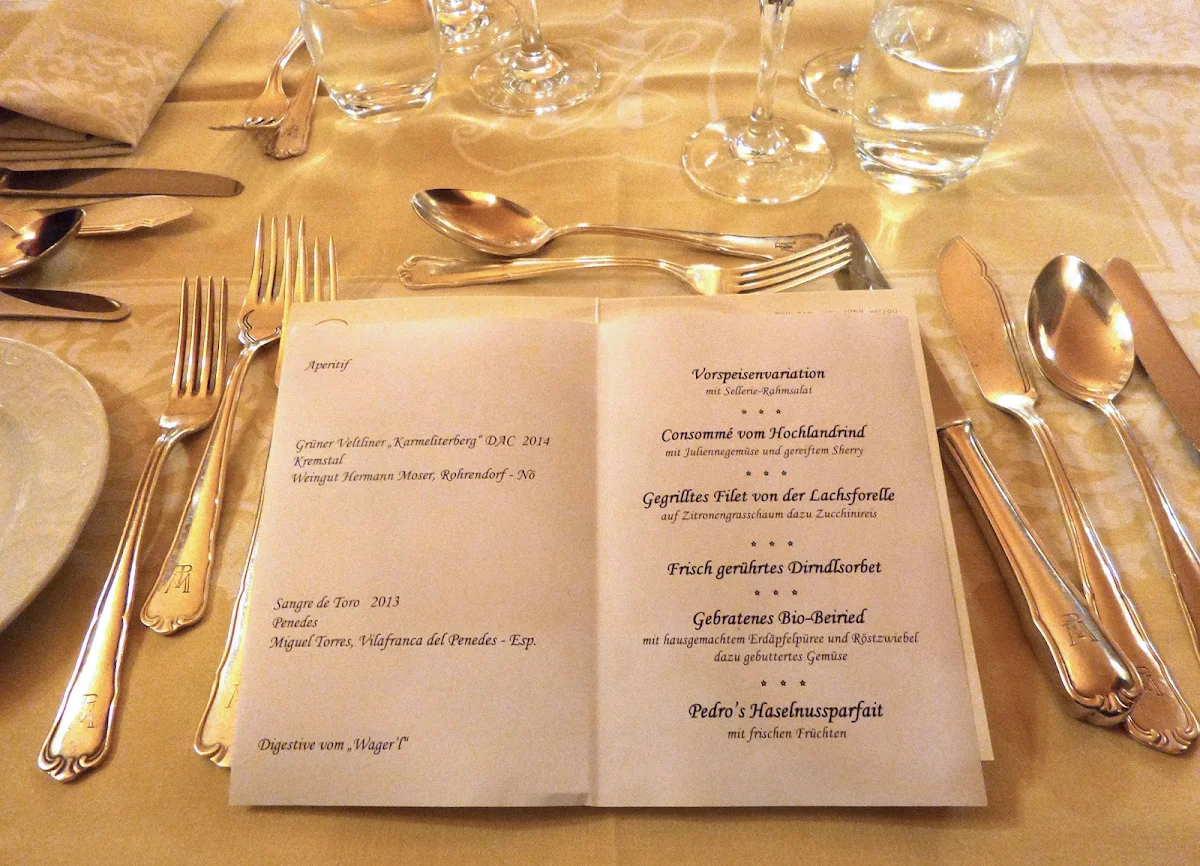 Aperitif
Grüner Veltliner „Karmeliterberg“ DAC 2014
Kremstal
Weingut Hermann Moser, Rohrendorf - Nö
Sangre de Toro 2013
Penedes
Miguel Torres, Vilafranca del Penedes - Esp.
Digestive vom „Wager'l“
Vorspeisenvariation
mit Sellerie-Rahmsalat
* * *
Consommé vom Hochlandrind
mit Juliennegemüse und gereiftem Sherry
* * *
Gegrilltes Filet von der Lachsforelle
auf Zitronengrasschaum dazu Zucchinireis
* * *
Frisch gerührtes Dirndlsorbet
* * *
Gebratenes Bio-Beiried
mit hausgemachtem Erdäpfelpüree und Röstzwiebel
dazu gebuttertes Gemüse
* * *
Pedro's Haselnussparfait
mit frischen Früchten